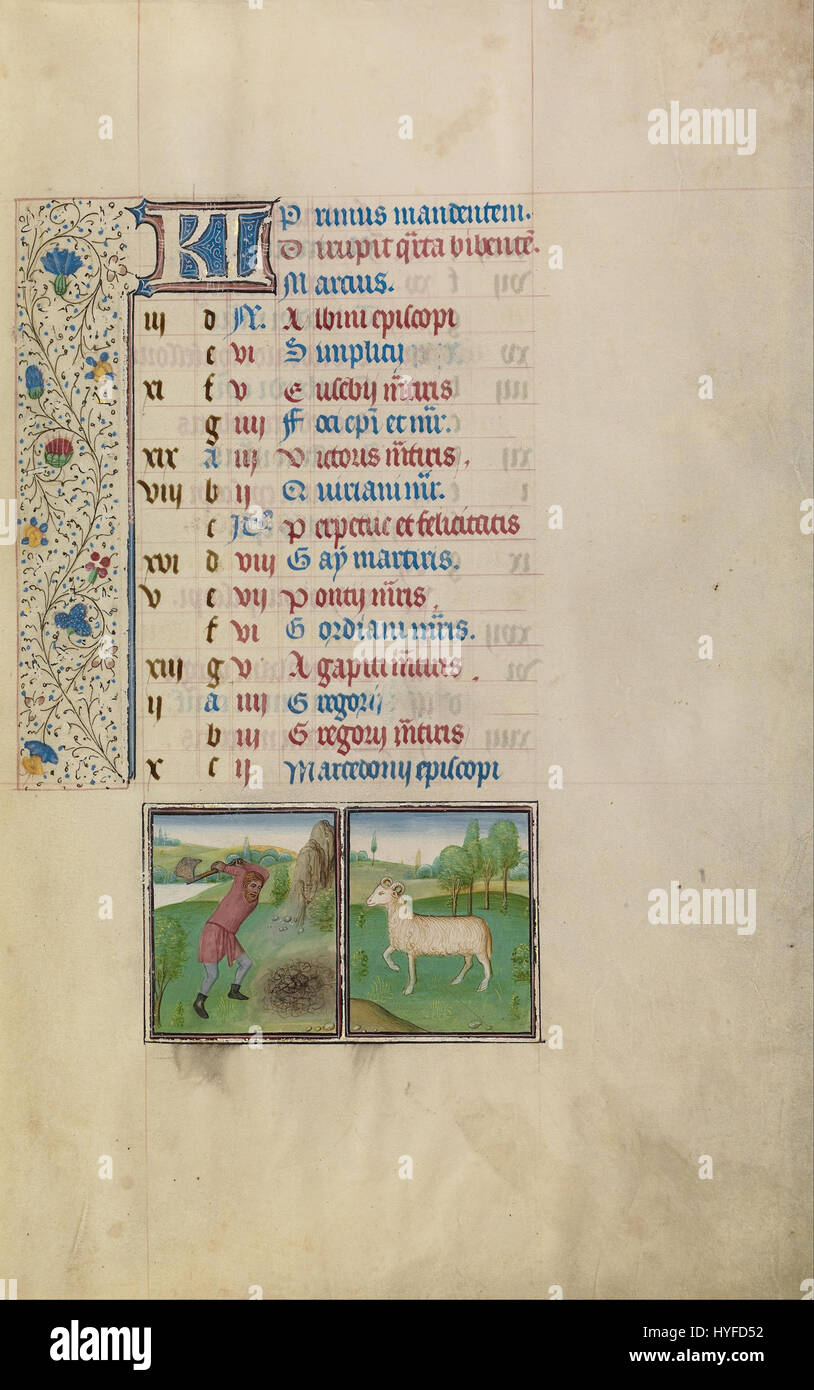 KL Primus mandentem.
Dirupit q̄rta bibentē.
Marcius.
iii d N. Albini episcopi
e vi Simplicij
xi f v Eusebij m̄tiris
g iiii Foci ep̄i et m̄r.
xix A iii Victoris m̄tiris.
viii b ii Quiriani m̄r.
c Nō Perpetue et felicitatis
xvi d viii Gaÿ martiris.
v e vii Pontij m̄ris.
f vi Gordiani m̄ris.
xiii g v Agapiti m̄tiris.
ii A iiii Gregorij
b iii Gregorij m̄tiris
x c ii Marcedonij episcopi
a alamy stock photo
HYFD52
www.alamy.com